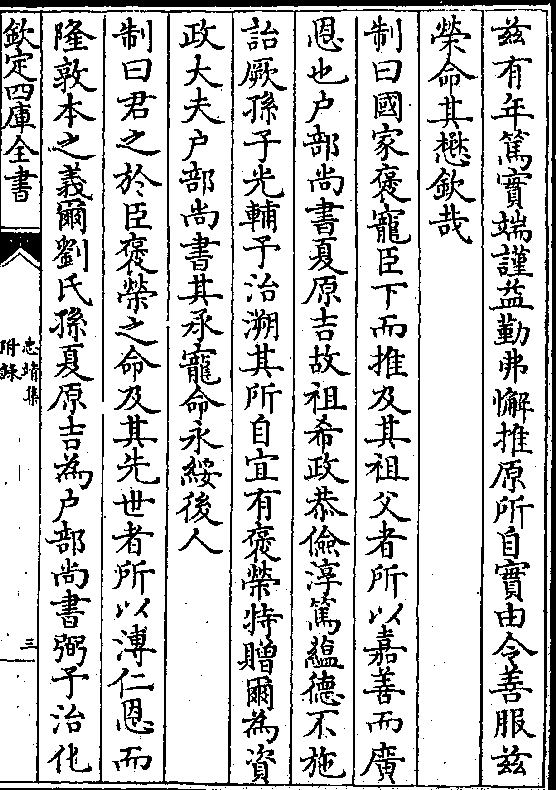 兹有年篤實端謹益勤弗懈推原所自實由令善服兹
榮命其懋欽哉
制曰國家褒寵臣下而推及其祖父者所以嘉善而廣
恩也户部尚書夏原吉故祖希政恭儉淳篤蘊德不施
詒厥孫子光輔予治溯其所自宜有褒榮特贈爾為資
政大夫户部尚書其承寵命永綏後人
制曰君之於臣褒榮之命及其先世者所以溥仁恩而
隆敦本之義爾劉氏孫夏原吉為户部尚書弼予治化
欽定四庫全書
忠靖集
附錄
三